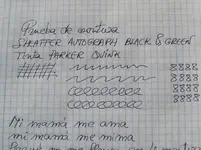 Prueba de escritura
SHEAFFER AUTOGRAPH BLACK & GREEN
Tinta PARKER QUINK
8888
8888
8888
8888
Mi mamá me ama
mi mamá me mima